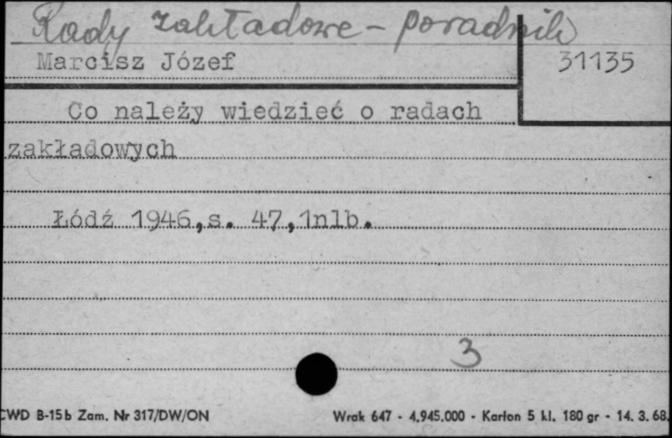 Rady zakładowe - poradnik
Marcisz Józef
31135
Co należy wiedzieć o radach
zakładowych
Łódź 1946,s. 47,1nlb.
3
CWD B-15b Zam. Nr 317/DW/ON
Wrak 647 - 4.945.000 - Karton 5 kl. 180 gr - 14. 3. 68.